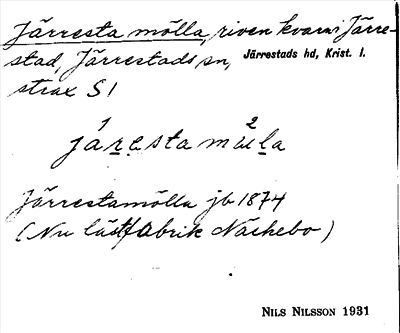 Järresta mölla, riven kvarn i Järre-
stad, Järrestads sn, Järrestads hd, Krist. l.
strax S l
1 2
járesta mɯla
Järrestamölla jb 1874
(Nu lästfabrik Näckebo)
NILS NILSSON 1931